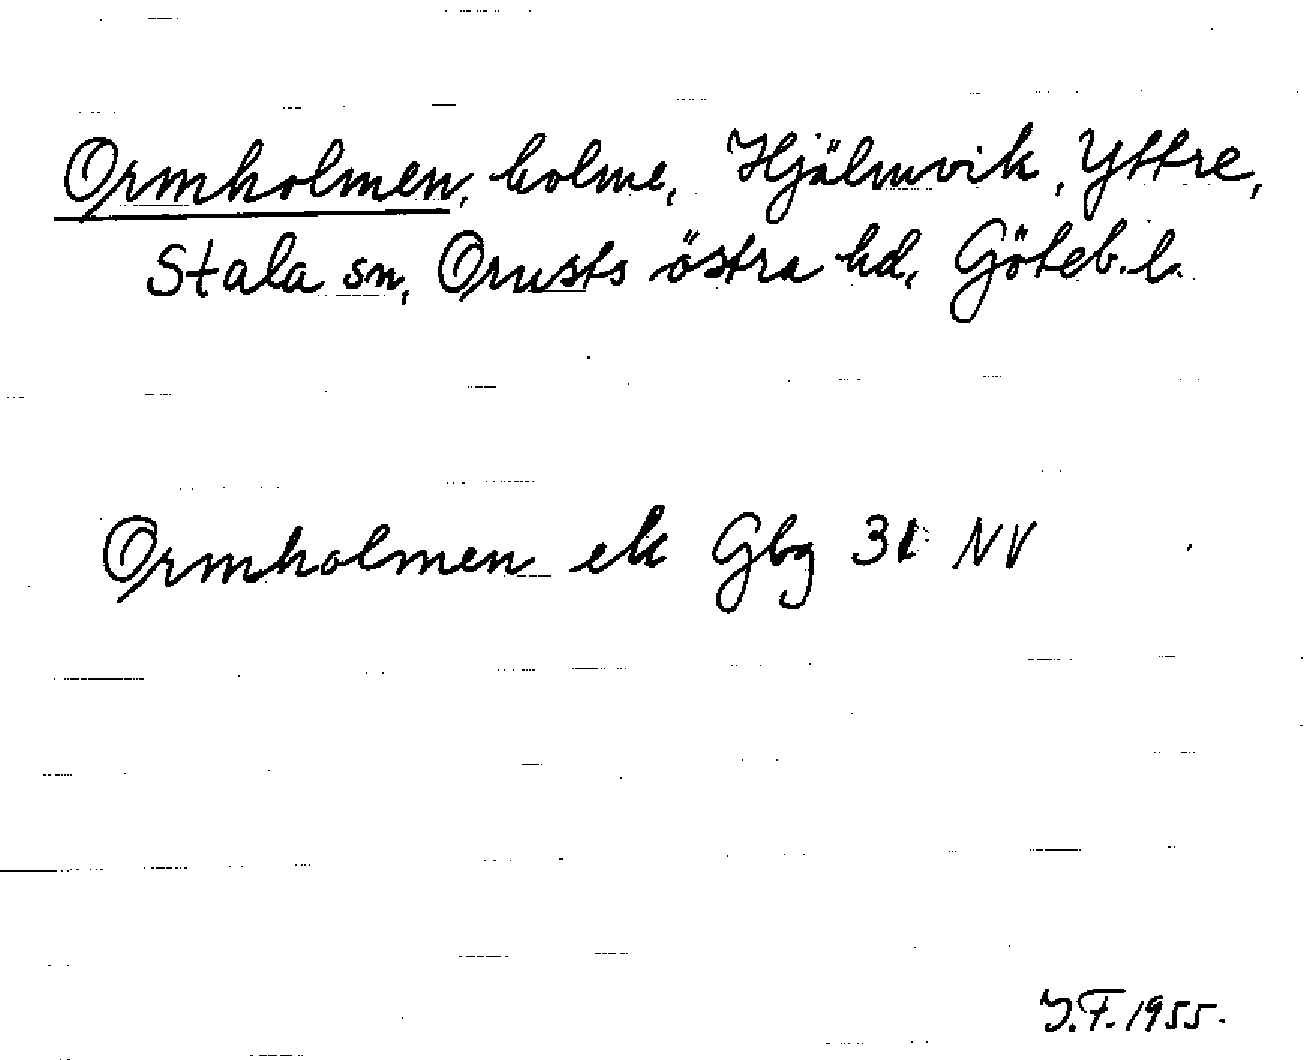 Ormholmen, holme, Hjälmvik, Yttre,
Stala sn, Orusts östra hd, Göteb. l.
Ormholmen ek Gbg 31 NV
J.F. 1955.